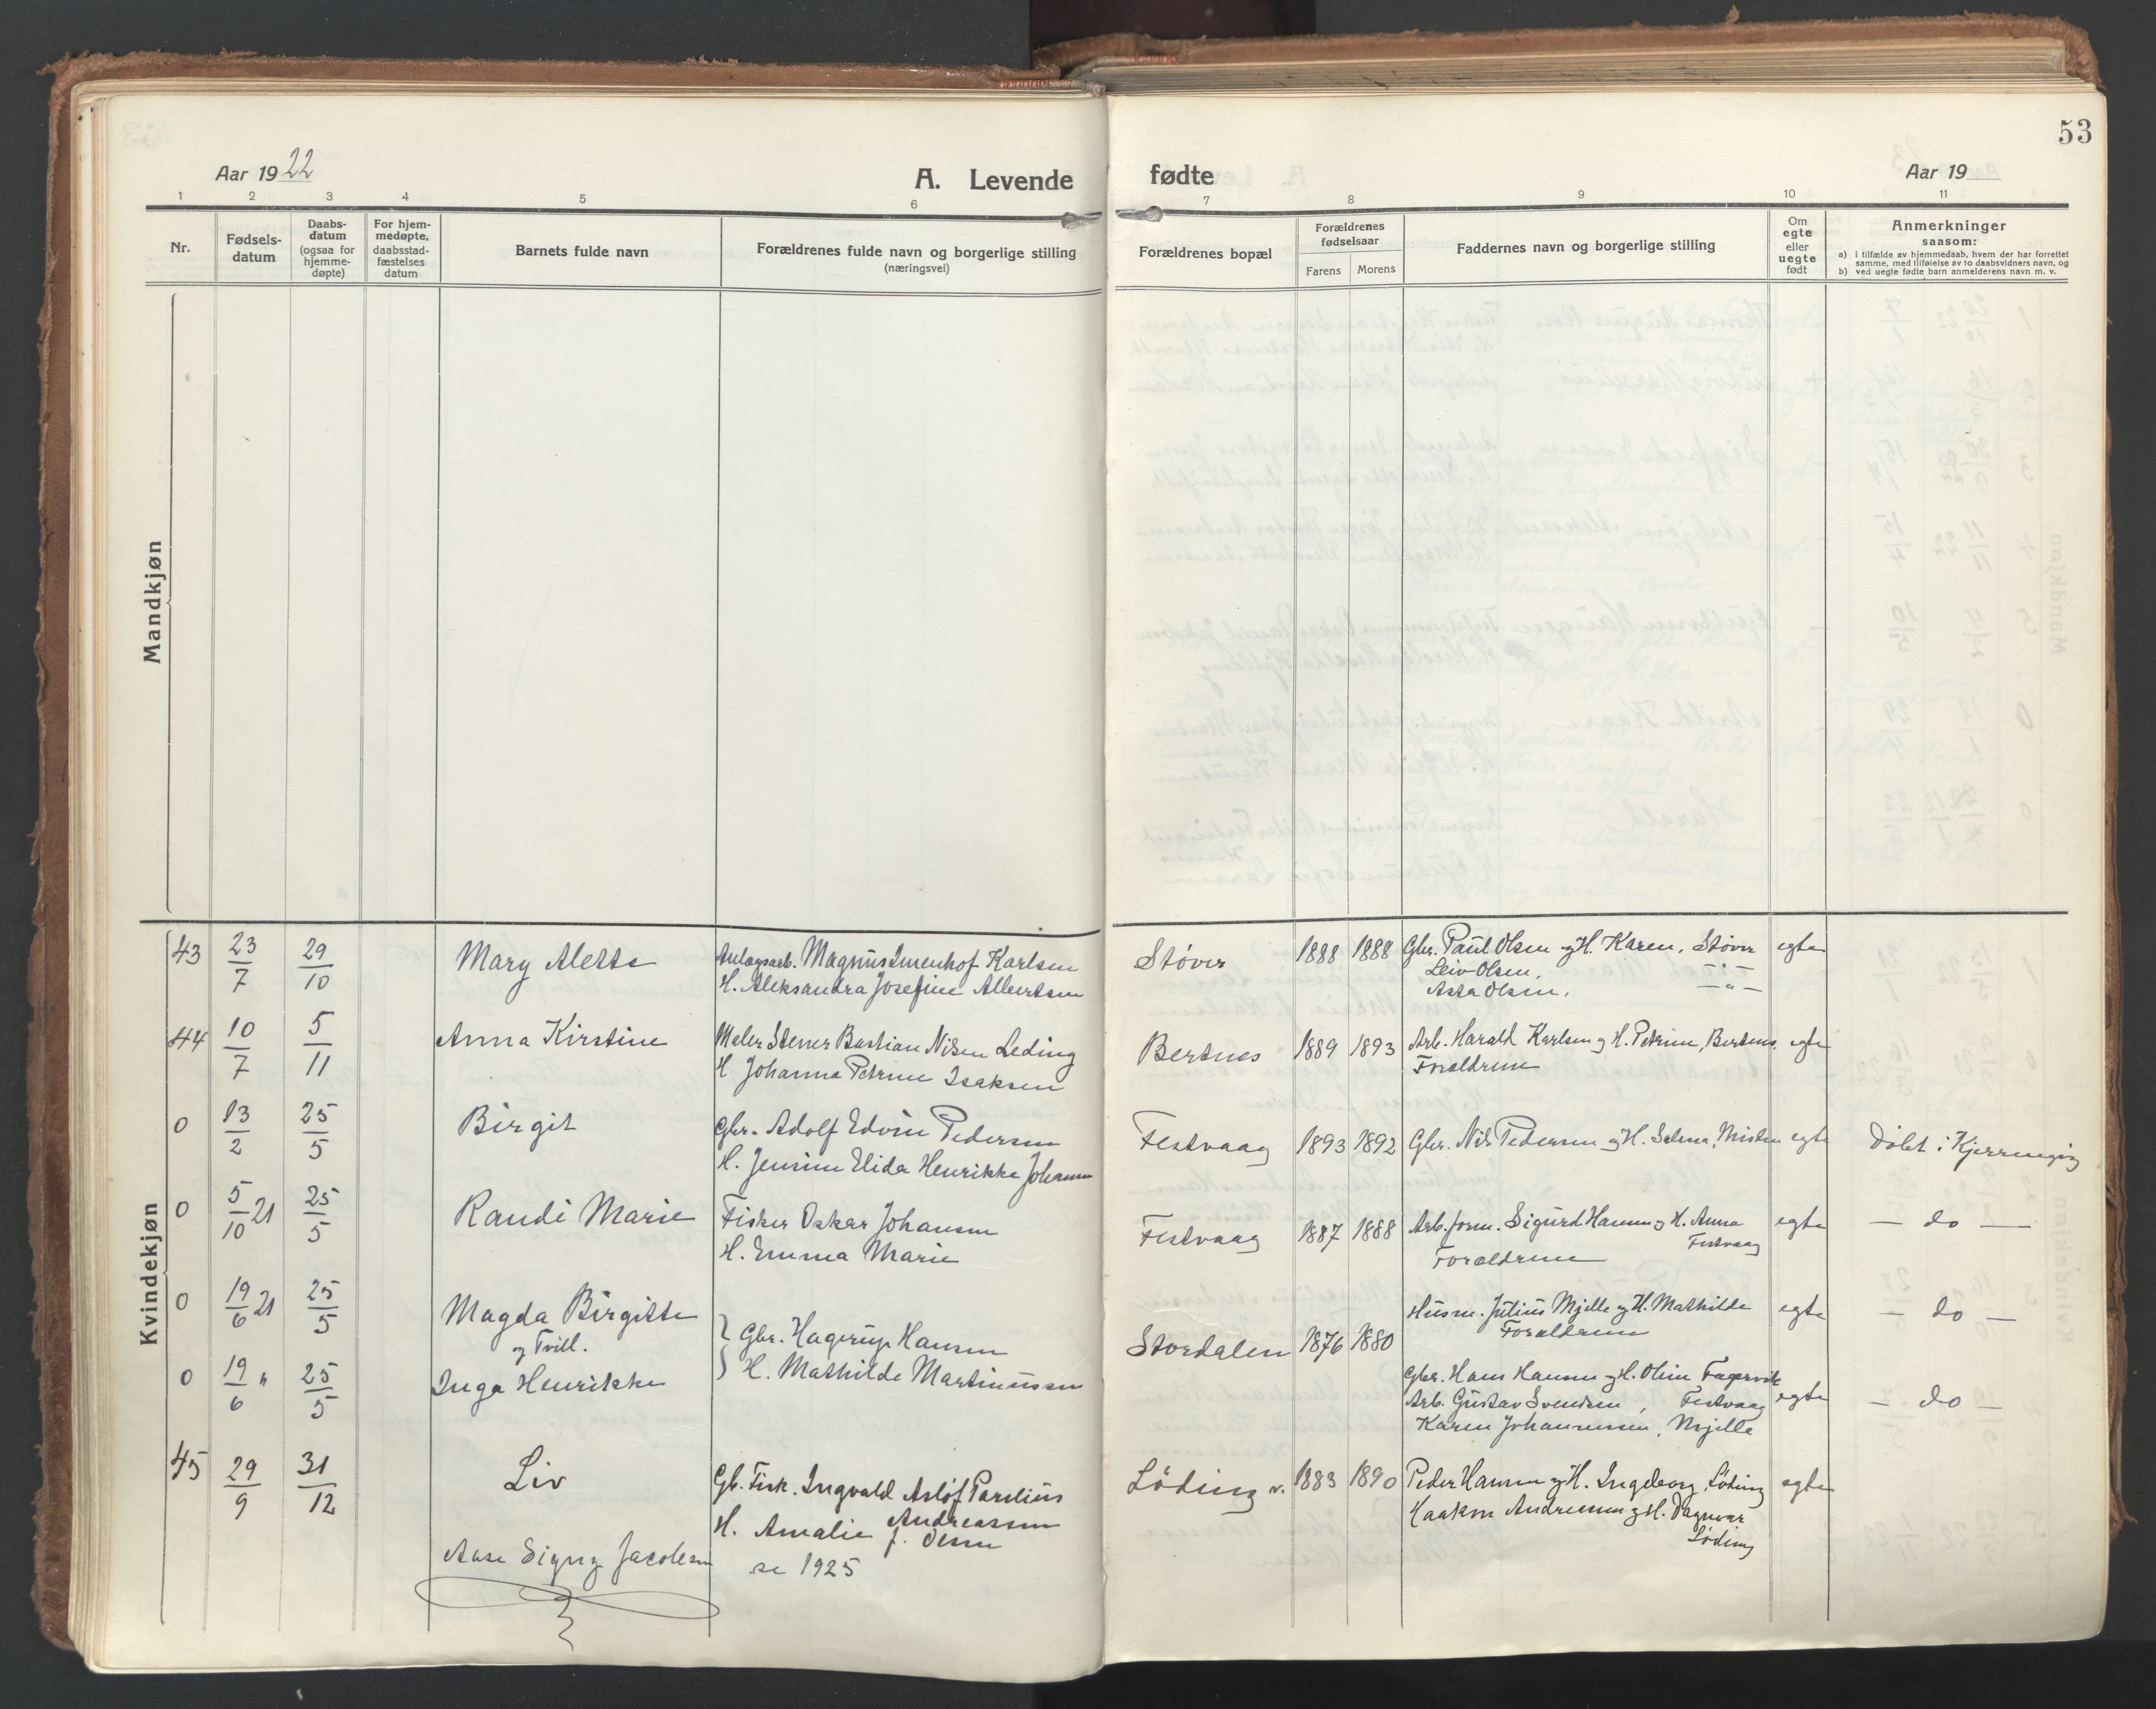 53
Aar 1922
A. Levende
fødte
Aar 19
1 2 3 4 5 6 7 8 9 10 11
Nr.
Fødsels-
datum
Daabs-
datum
(ogsaa for
hjemme-
døpte)
For hjem-
medøpte,
daabsstad-
fæstelses
datum
Barnets fulde navn
Forældrenes fulde navn og borgerlige stilling
(næringsvei)
Forældrenes bopæl
Forældrenes
fødselsaar
Farens Morens
Faddernes navn og borgerlige stilling
Om
egte
eller
uegte
født
Anmerkninger
saasom:
a) i tilfælde av hjemmedaab, hvem der har forrettet
samme, med tilføielse av to daabsvidners navn, og
b) ved uegte fødte barn anmelderens navn m. v.
Mandkjøn
Kvindekjøn
43 23/7 29/10 Mary Alette
Anlægsarb. Magnus Imenhof Karlsen
H. Aleksandra Josefine Albertsen
Støver 1888 1888
Gbr. Paul Olsen og H. Karen, Støver
Leiv Olsen, -"-
Asta Olsen, -"-
egte
44 10/7 5/11 Anna Kirstine
Maler Stener Bastian Nilsen Leding
H Johanna Petrine Isaksen
Bertnes 1889 1893
Arb. Harald Karlsen og H. Petrine, Bertnes.
Forældrene
egte
0 13/2 25/5 Birgit
Gbr. Adolf Edvin Pedersen
H. Jensine Elida Henrikke Johansen
Festvaag 1893 1892
Gbr. Nils Pedersen og H. Selma, Misten
egte
Døbt i Kjerringøy
0 5/10 21 25/5 Randi Marie
Fisker Oskar Johansen
H. Emma Marie
Festvaag 1887 1888
Arb. form. Sigurd Hansen og H. Anna
Festvaag
Forældrene
egte
- do -
0 19/6 21 25/5 Magda Birgitte
og Tvill.
0 19/6 " 25/5 Inga Henrikke
Gbr. Hagerup Hansen
H. Mathilde Martinussen
Stordalen 1876 1880
Husm. Julius Mjelle og H. Mathilde
Forældrene
egte
- do -
Gbr. Hans Hansen og H. Oline Fagervik
Arb. Gustav Svendsen, Festvaag
Karen Johannesen, Mjelle
egte
- do -
45 29/9 31/12 Liv
Gb. Fisk. Ingvald Asløf Parelius
Andreassen
H. Amalie f. Olsen
Løding v. 1883 1890
Peder Hansen og H. Ingeborg, Løding
Haakon Andreassen og H. Dagmar
Løding
egte
Aase Signy Jacobsen se 1925